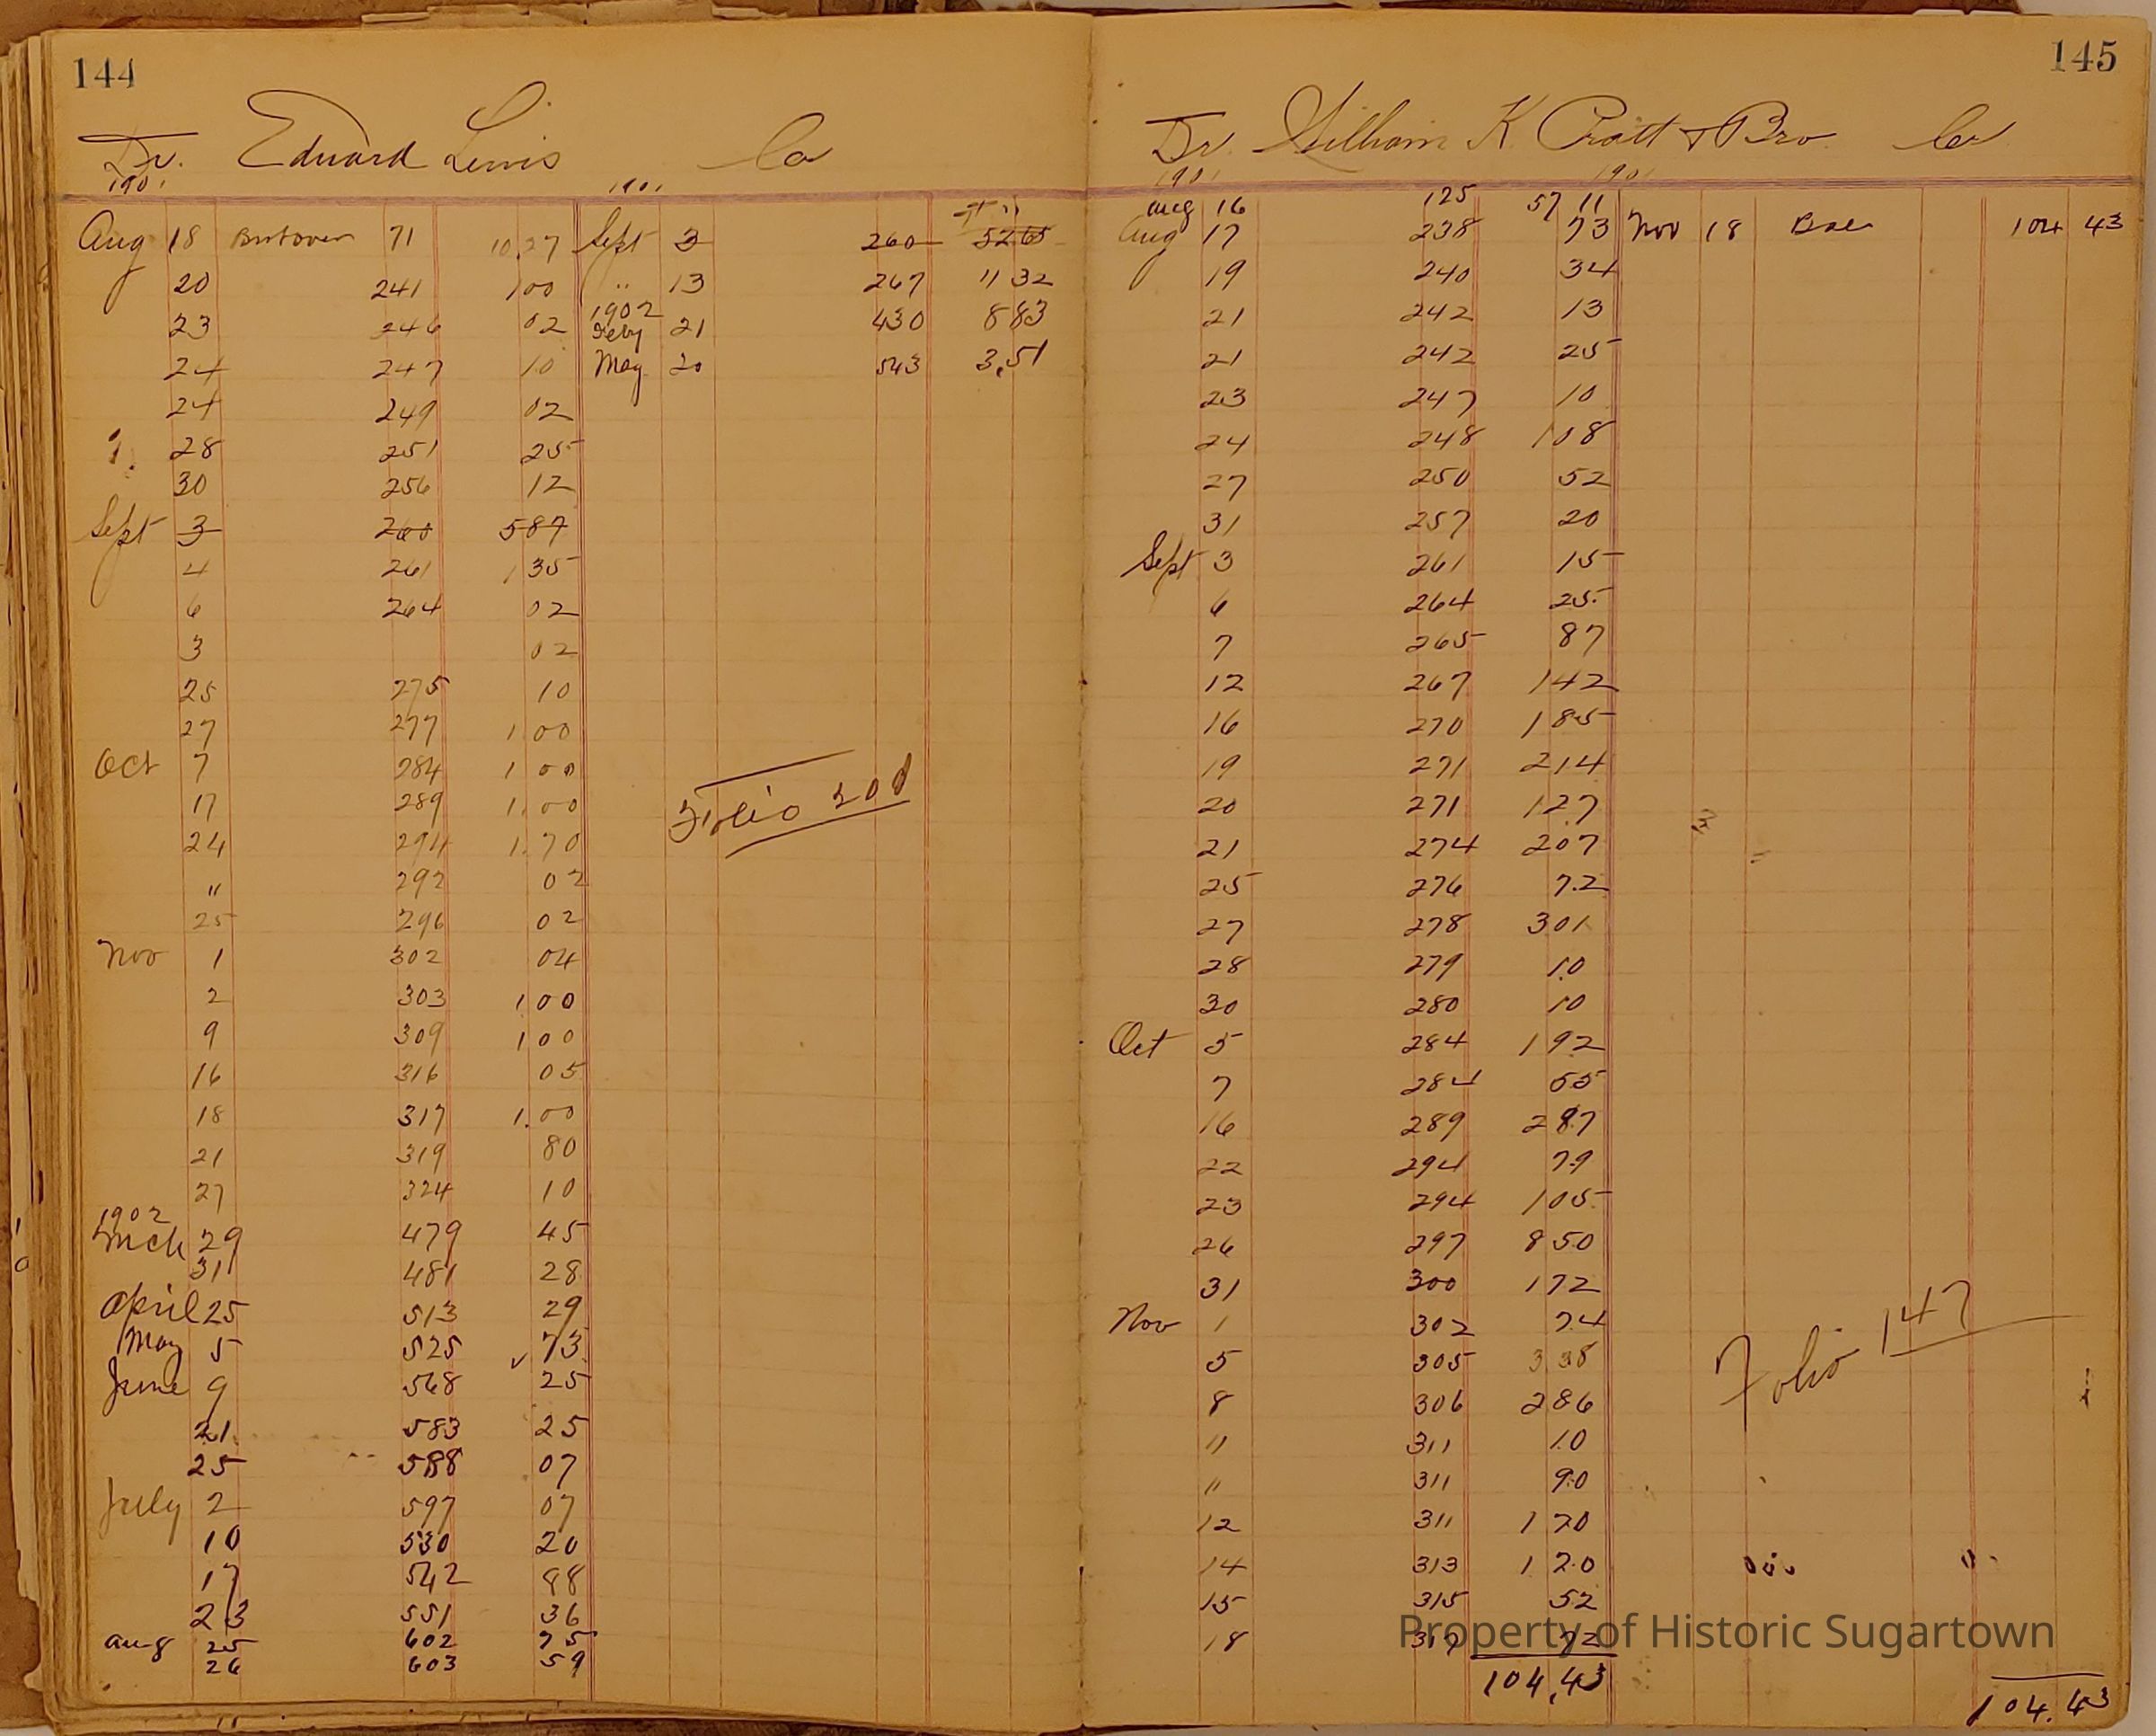 144
Dr. Edward Lewis Co
1901 1901
Aug 18 Brot over 71 10.27 Sept 3 260 5265
20 241 1 00 " 13 267 11 32
23 246 02 1902 Feby 21 430 8 83
24 247 10 May 20 543 3,51
24 249 02
28 251 25
30 256 12
Sept 3 260 587
4 261 1 35
6 264 02
3 02
25 275 10
27 277 1 00
Oct 7 284 1 00
17 289 1.00
24 294 1.70
" 292 02
25 296 02
Nov 1 302 04
2 303 1 00
9 309 1 00
16 316 05
18 317 1.00
21 319 80
27 324 10
1902
Mch 29 479 45
31 481 28
April 25 513 29
May 5 525 73
June 9 568 25
21 583 25
25 588 07
July 2 597 07
10 530 20
17 542 98
23 551 36
Aug 25 602 75
26 603 59
Folio 200
145
Dr. William K Pratt & Bro. Cr
1901 1901
Aug 16 125 57 11
Aug 17 238 73 Nov 18 Bal 104 43
19 240 34
21 242 13
21 242 25
23 247 10
24 248 1 08
27 250 52
31 257 20
Sept 3 261 15
6 264 25
7 265 87
12 267 1 42
16 270 1 85
19 271 2 14
20 271 1 27
21 274 2 07
25 276 72
27 278 3 01
28 279 10
30 280 10
Oct 5 284 1 92
7 284 55
16 289 2 87
22 294 79
23 294 1 05
26 297 8 50
31 300 1 72
Nov 1 302 74
5 305 3 38
8 306 2 86
11 311 10
" 311 90
12 311 1 70
14 313 1 20
15 315 52
18 317 72
104,43 104.43
Folio 147
Property of Historic Sugartown